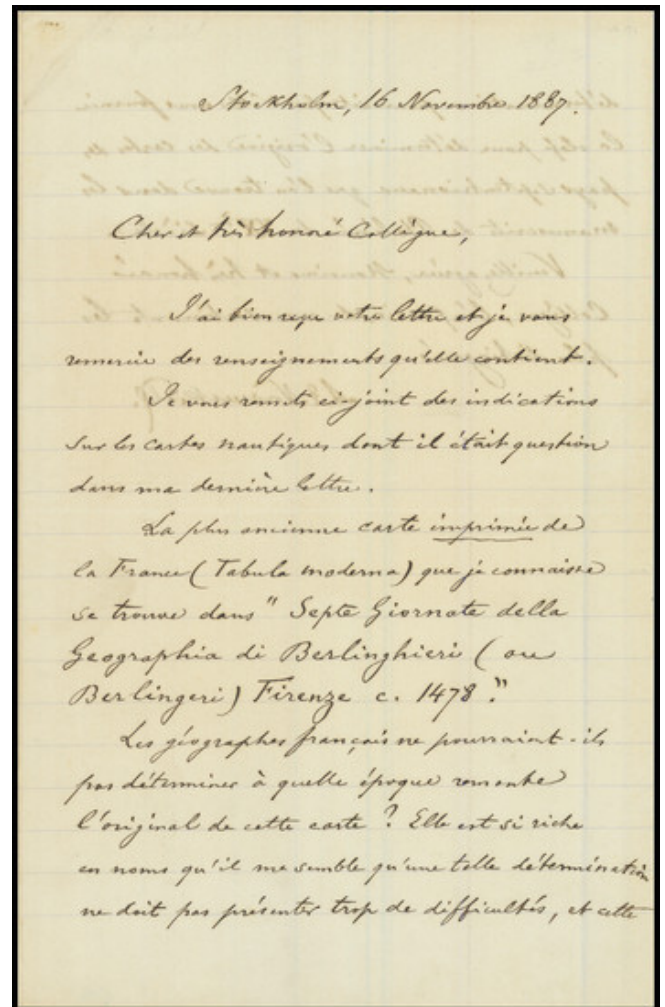 Stockholm, 16 Novembre 1887.
Cher et très honoré Collègue,
J'ai bien reçu votre lettre et je vous
remercie des renseignements qu'elle contient.
Je vous remets ci-joint des indications
sur les cartes nautiques dont il était question
dans ma dernière lettre.
La plus ancienne carte imprimée de
la France (Tabula moderna) que je connaisse
se trouve dans " Septe Giornate della
Geographia di Berlinghieri (ou
Berlingeri) Firenze c. 1478."
Les géographes français ne pourraient-ils
pas déterminer à quelle époque remonte
l'original de cette carte ? Elle est si riche
en noms qu'il me semble qu'une telle détermination
ne doit pas présenter trop de difficultés, et cette